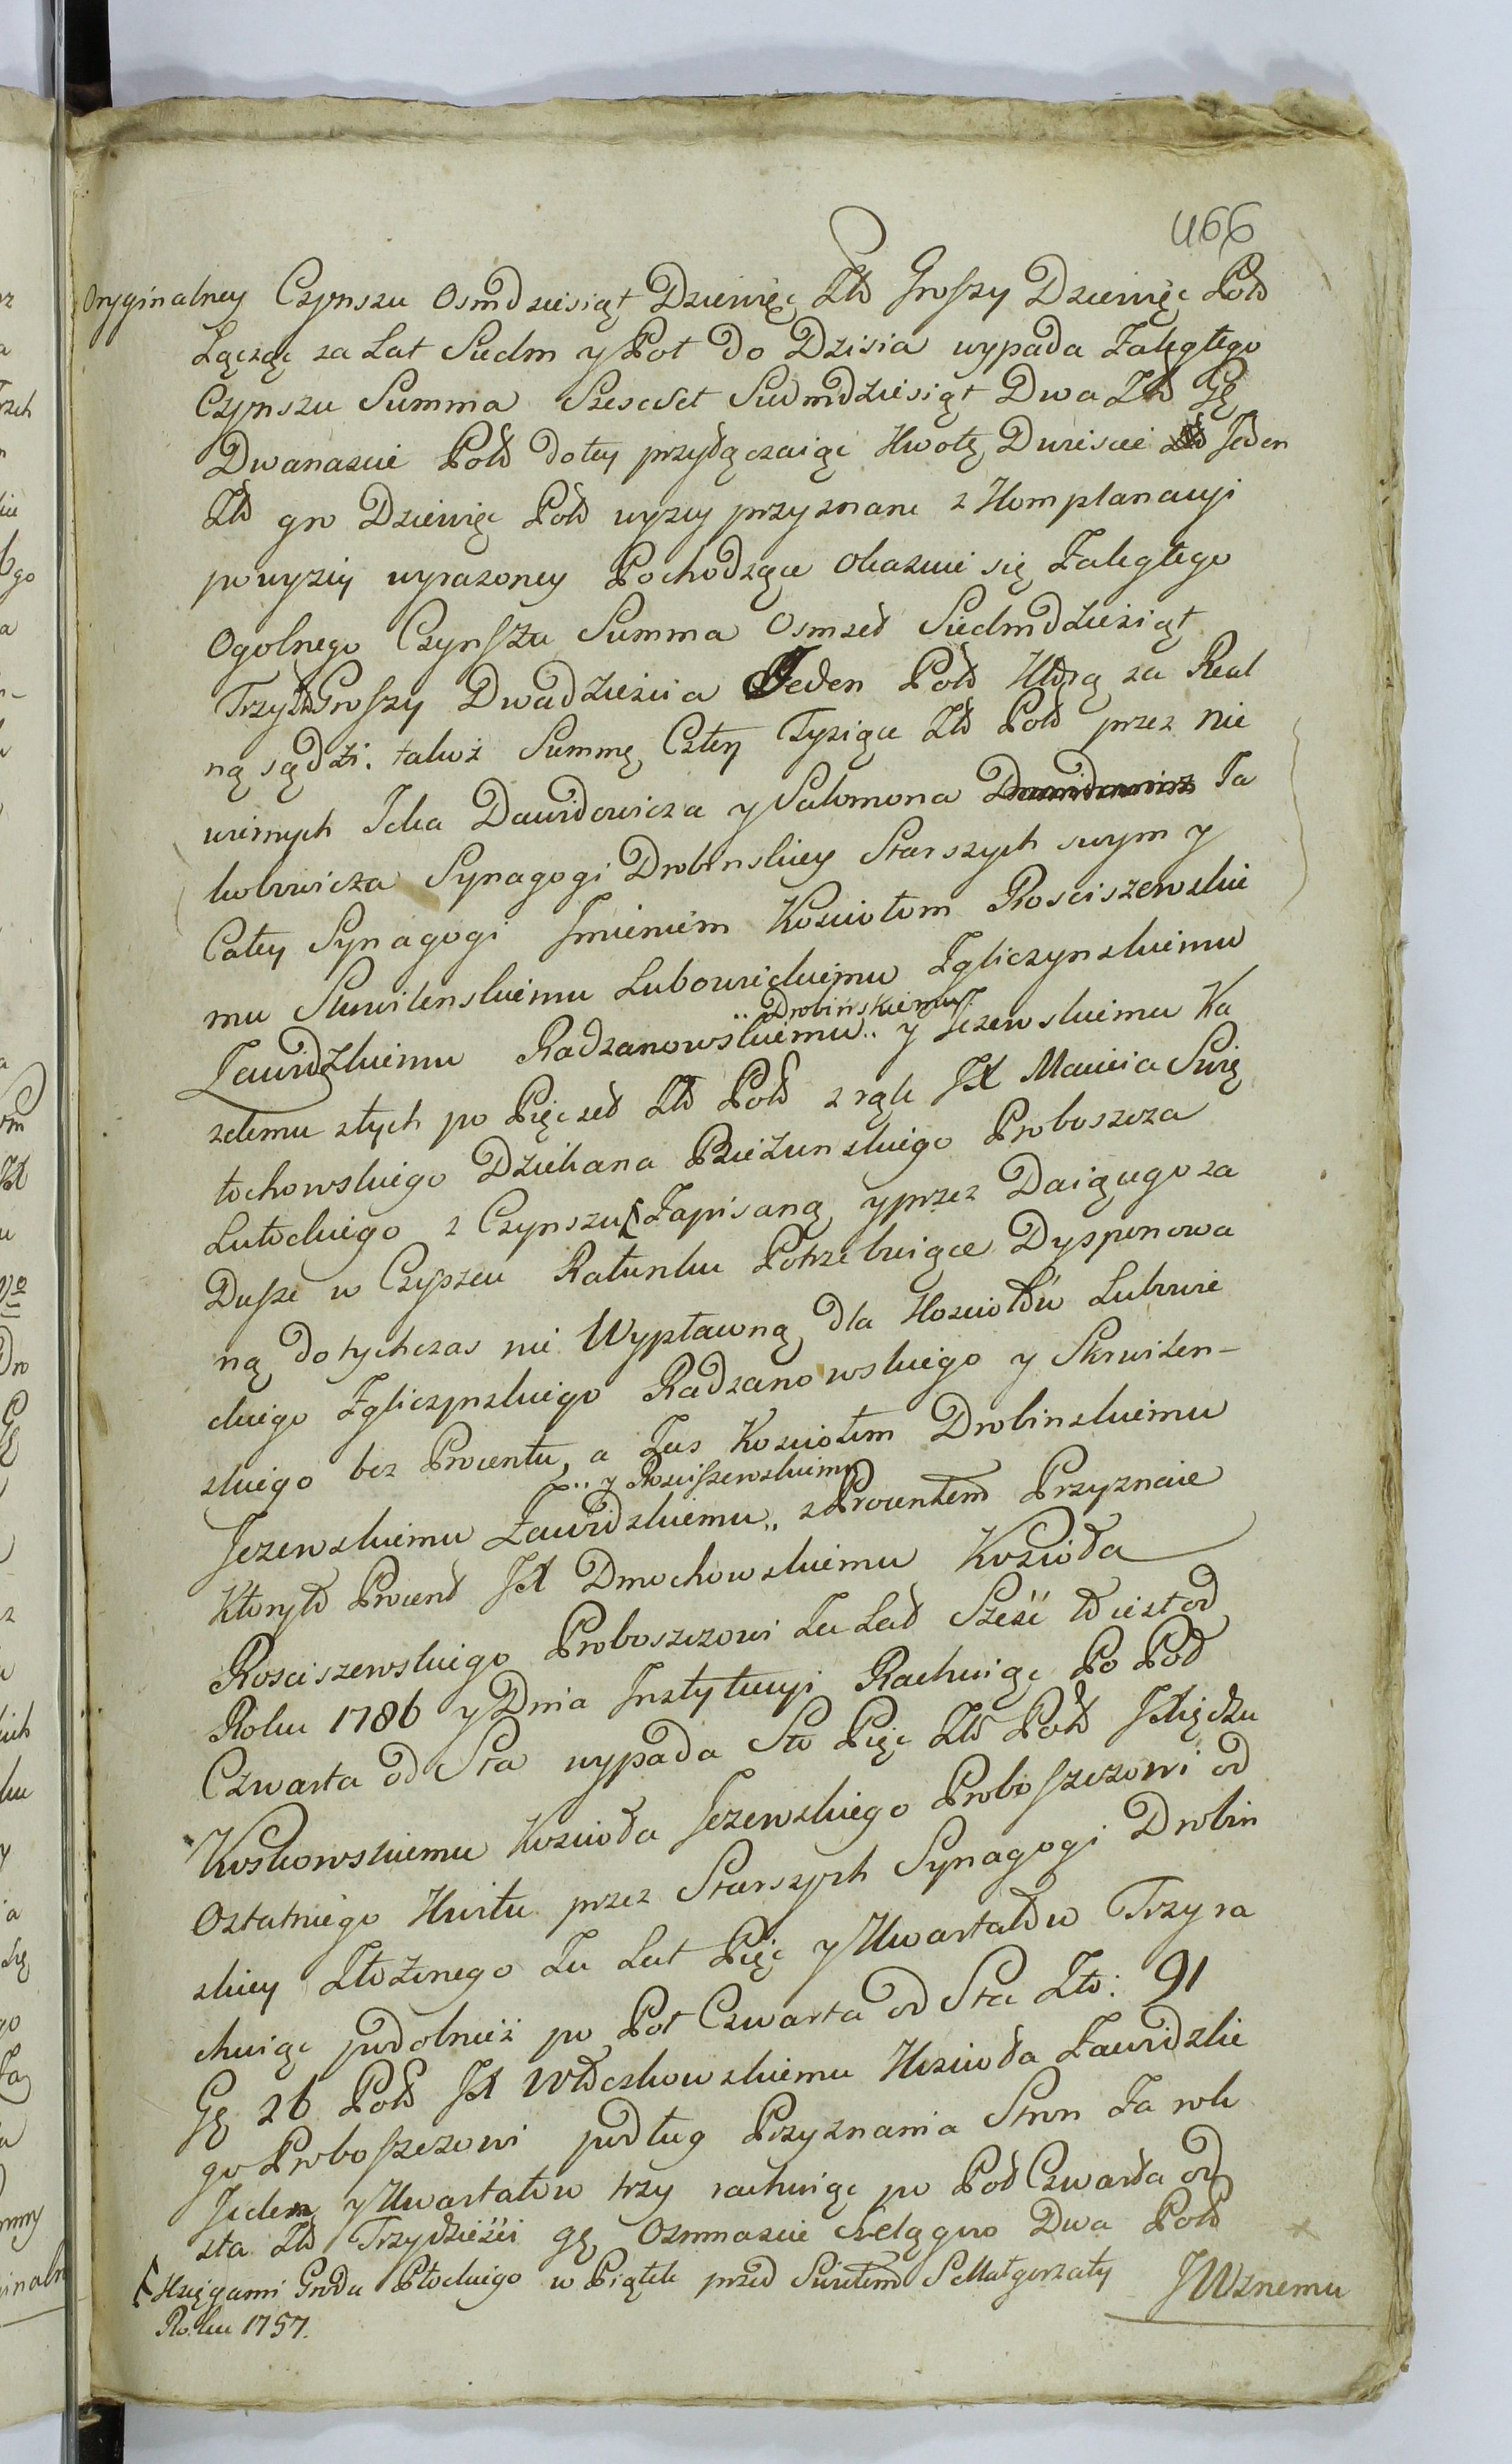 466
Oryginalney Czynszu Osmdziesiąt Dziewięc Złł Groszy Dziewięc Poll
Łącząc za Lat Siedm y Poł do Dzisia wypada Zaległego
Czynszu Summa Szescset Siedmdziesiąt Dwa Złł Gę
Dwanascie Poll do tey przyłączaiąc Kwotę Dwiescie Jeden
Złł gro Dziewięc Poll wyzey przyznane z Komplanacyi
powyziey wyrazoney Pochodzące Okazuie się Zaległego
Ogolnego Czynszu Summa Osmset Siedmdziesiąt
Trzy Złł Groszy Dwadziescia Jeden Poll Którą za Real
ną sądzi. takoż Summę Cztery Tysiące Złł Poll przez nie
wiernych Icka Dawidowicza y Salomona Ja
kobowicza Synagogi Drobinskiey Starszych swym y
Całey Synagogi Jmieniem Kosciołom Rosciszewskie
mu Skwilenskiemu Lubowickiemu Zgliczynskiemu
Zawidzkiemu Radzanowskiemu .. Drobińskiemu .. y Jezewskiemu Ka
zdemu z tych po Pięcset Złł Poll z rąk JX Macieia Swię
tochowskiego Dziekana Bieżunskiego Proboszcza
Lutockiego z Czynszu Zapisaną y przez Daiącego za
Dusze w Czyscu Ratunku Potrzebuiące Dysponowa
ną dotychczas nie Wypłaconą dla Kosciołów Lubowie
ckiego Zgliczynskiego Radzanowskiego y Skrwilen-
skiego bez Procentu, a Zas Kosciołom Drobinskiemu
Jezewskiemu Zawidzkiemu .. y Rosciszewskiemu .. z Procentem Przyznaie
Któryto Procent JX Dmochowskiemu Kościoła
Rosciszewskiego Proboszczowi Za Lat Sześć to iest od
Roku 1786 y Dnia Instytucyi Rachuiąc Po Poł
Czwarta od Sta wypada Sto Pięc Złł Poll JXiędzu
Koskowskiemu Kościoła Jezewskiego Proboszczowi od
Ostatniego Kwitu przez Starszych Synagogi Drobin
skiey Złożonego Za Lat Pięc y Kwartałów Trzy ra
chuiąc podobnież po Poł Czwarta od Sta Zło: 91
Gę 26 Poll JX Włoczkowskiemu Kościoła Zawidzkie
go Proboszczowi podług Przyznania Stron Za rok
Jeden y Kwartałow trzy rachuiąc po Poł Czwarta od
sta Złł Trzydzieści gę Osmnascie Szelągow Dwa Poll
Xięgami Grodu Płockiego w Piątek przed Swiętem S Małgorzaty
Roku 1757.
JWznemu